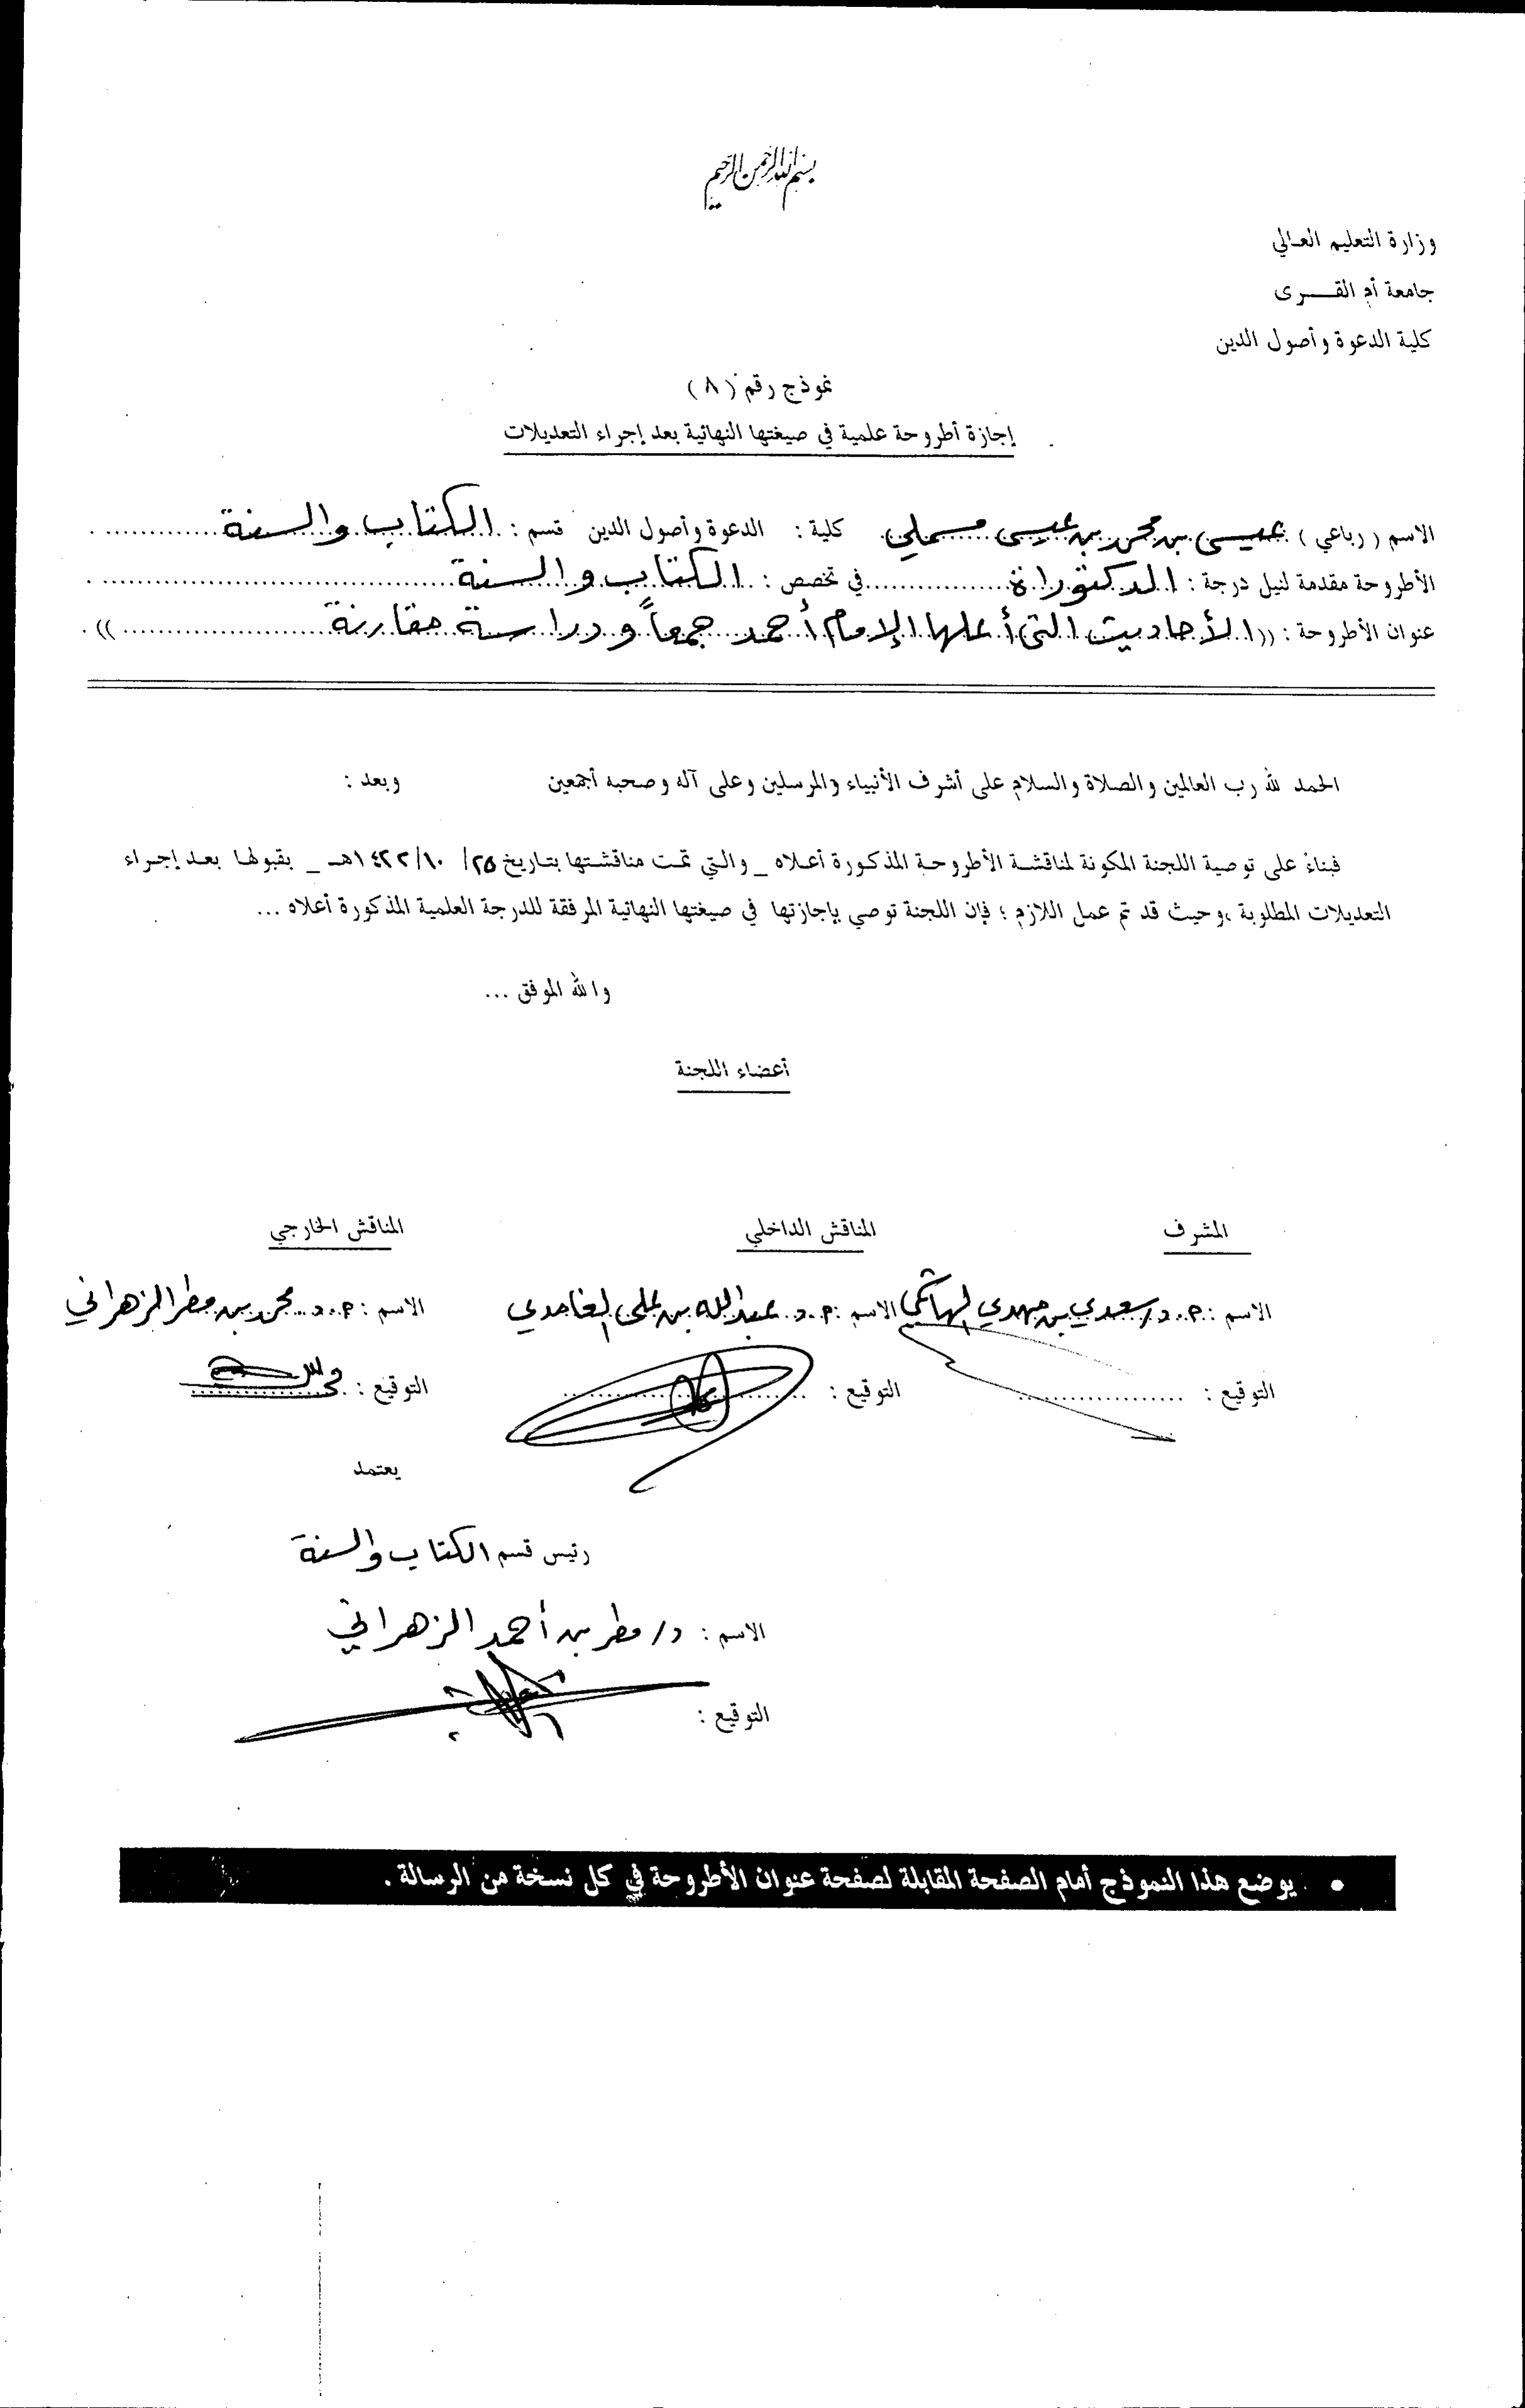 بسم الله الرحمن الرحيم
وزارة التعليم العالي
جامعة أم القـــرى
كلية الدعوة وأصول الدين
نموذج رقم (٨)
إجازة أطروحة علمية في صيغتها النهائية بعد إجراء التعديلات
الاسم ( رباعي ) عيسى بن محمد بن عيسى مسملي كلية : الدعوة وأصول الدين قسم : الكتاب والسنة
الأطروحة مقدمة لنيل درجة : الدكتوراة في تخصص : الكتاب والسنة
عنوان الأطروحة : (( الأحاديث التي أعلها الإمام أحمد جمعاً ودراسة مقارنة )) .
الحمد لله رب العالمين والصلاة والسلام على أشرف الأنبياء والمرسلين وعلى آله وصحبه أجمعين وبعد :
فبناءً على توصية اللجنة المكونة لمناقشة الأطروحة المذكورة أعلاه _ والتي تمت مناقشتها بتاريخ ٢٥/ ١٠/ ١٤٢٢هـ _ بقبولها بعد إجراء
التعديلات المطلوبة ،وحيث قد تم عمل اللازم ؛ فإن اللجنة توصي بإجازتها في صيغتها النهائية المرفقة للدرجة العلمية المذكورة أعلاه ...
والله الموفق ...
أعضاء اللجنة
المشرف المناقش الداخلي المناقش الخارجي
الاسم : أ.د/ سعدي بن مهدي الهاشمي الاسم : أ.د. عبدالله بن علي الغامدي الاسم : أ.د. محمد بن مطر الزهراني
التوقيع : التوقيع : التوقيع :
يعتمد
رئيس قسم الكتاب والسنة
الاسم : د/ مطر بن أحمد الزهراني
التوقيع :
• يوضع هذا النموذج أمام الصفحة المقابلة لصفحة عنوان الأطروحة في كل نسخة من الرسالة .